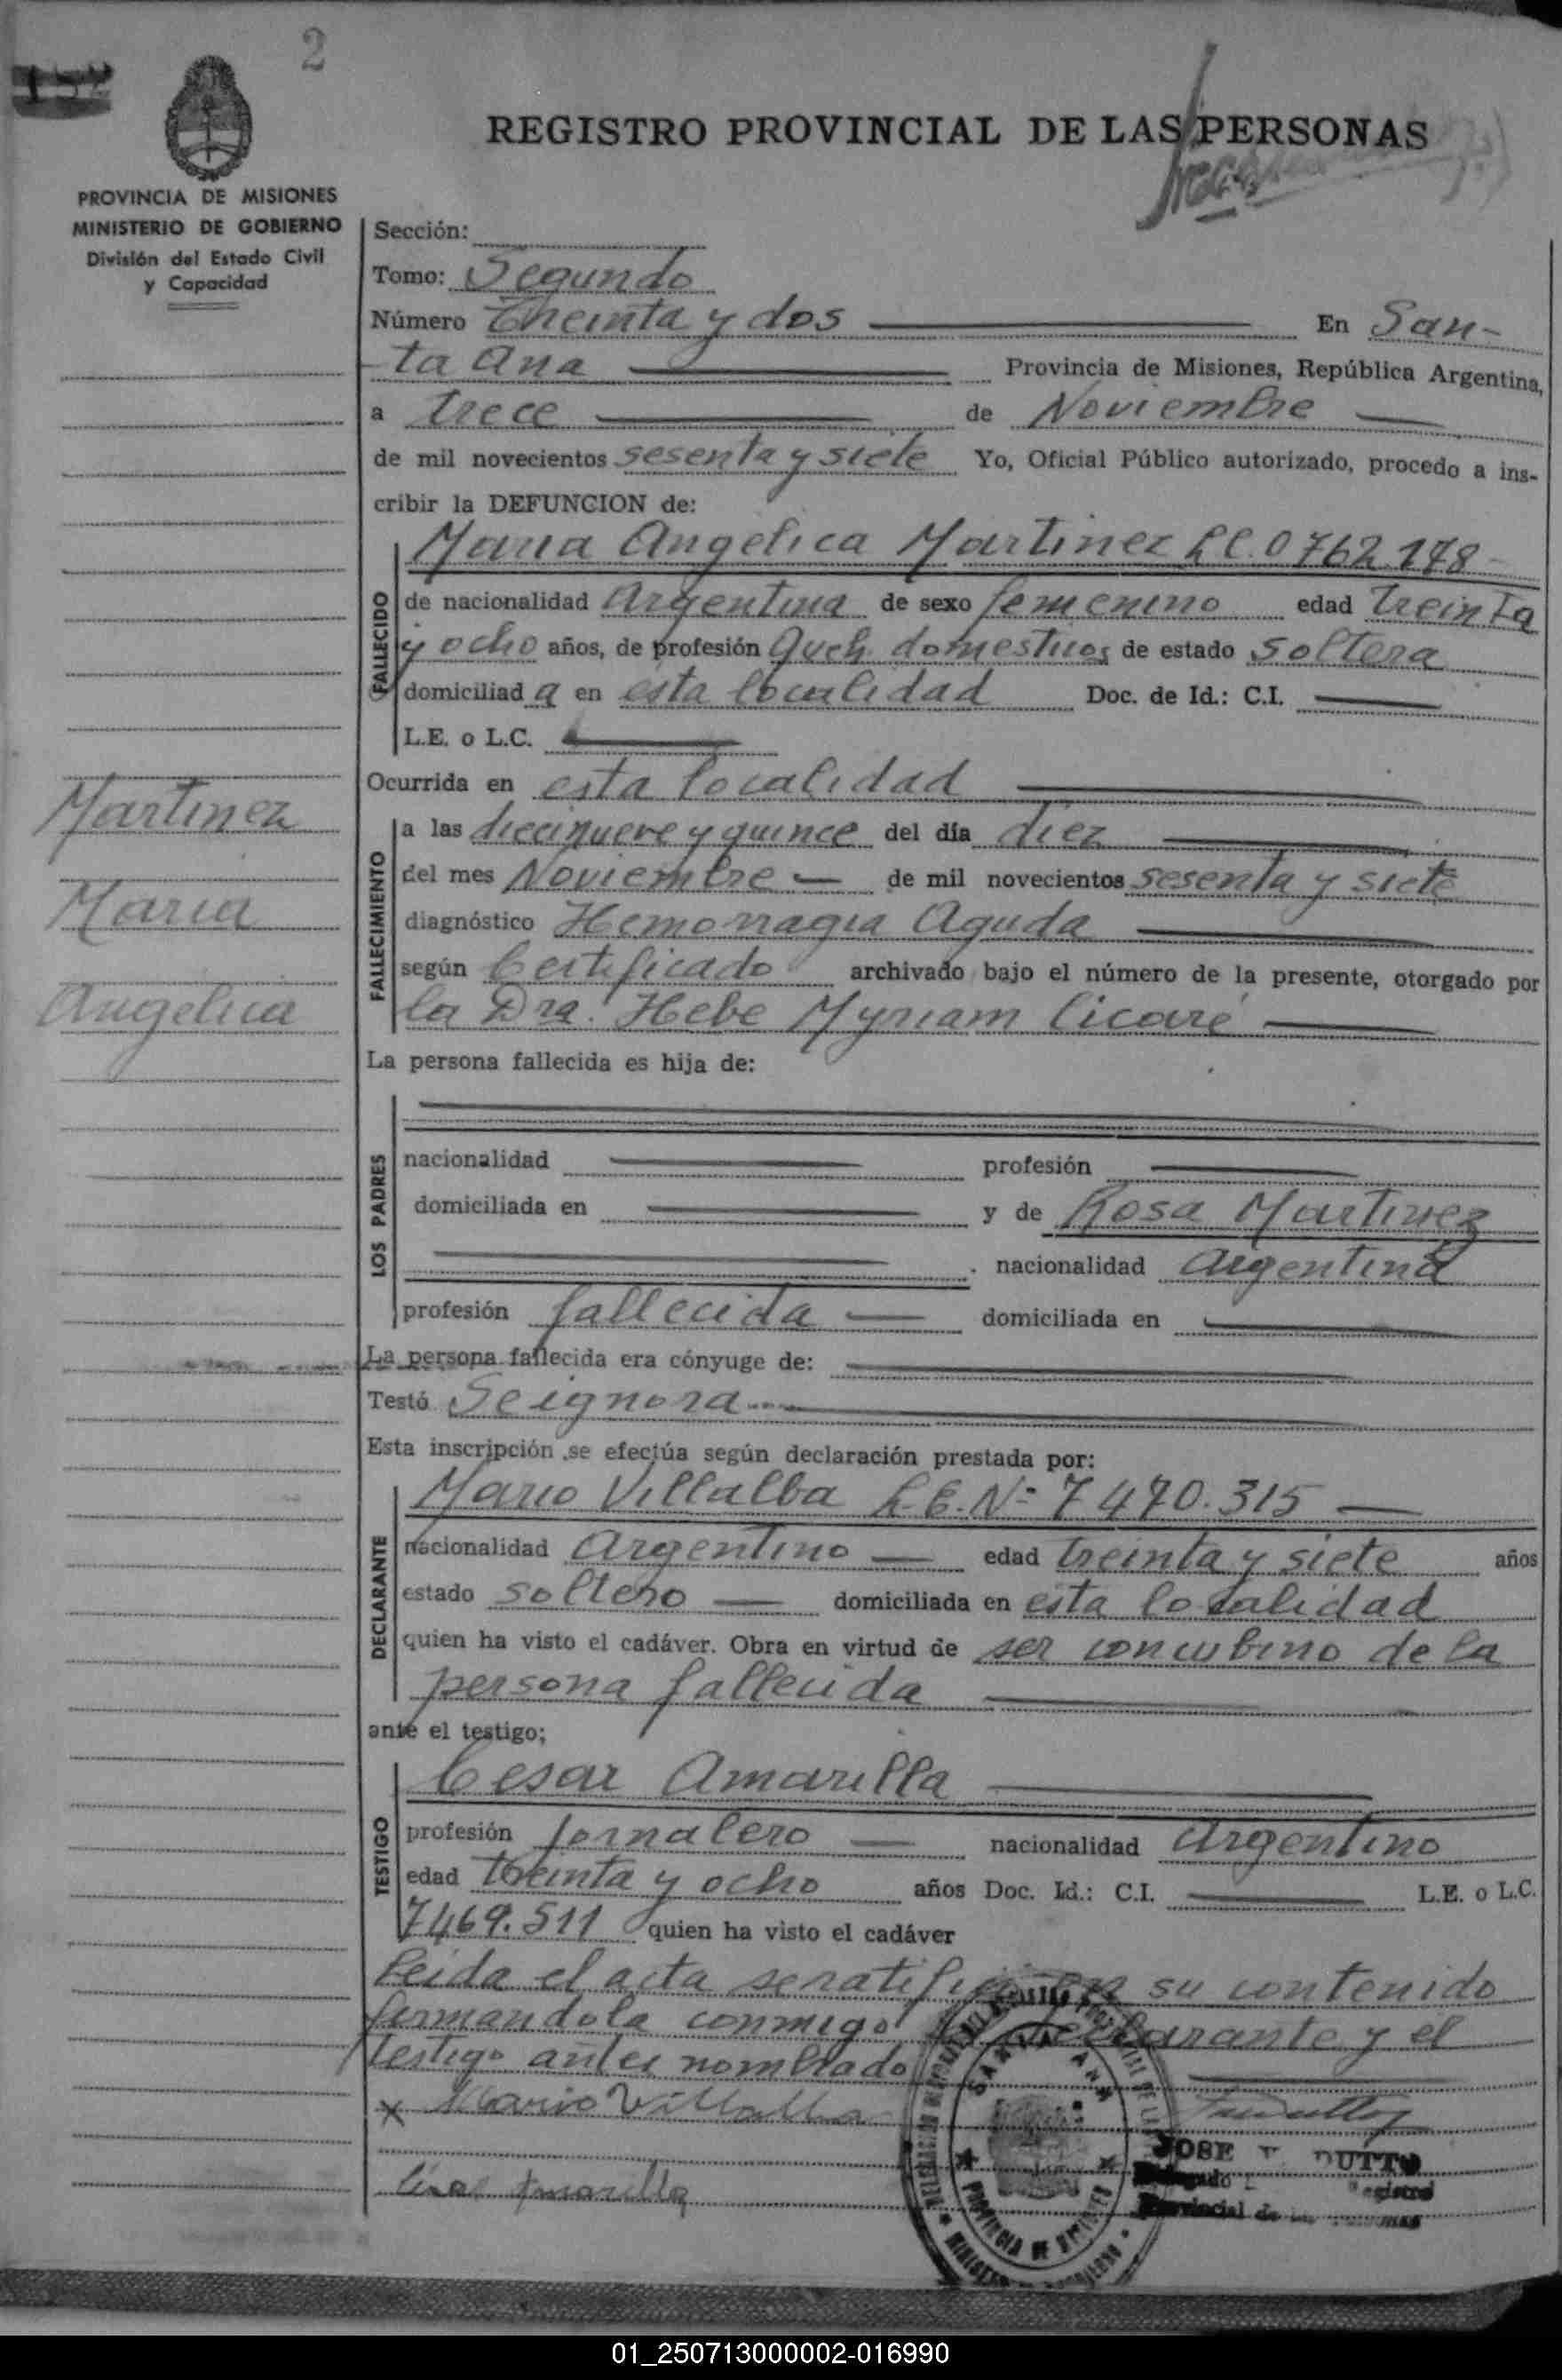 2
REGISTRO PROVINCIAL DE LAS PERSONAS
PROVINCIA DE MISIONES
MINISTERIO DE GOBIERNO
División del Estado Civil
y Capacidad
Sección:
Tomo: Segundo
Número Treinta y dos En San-
ta Ana Provincia de Misiones, República Argentina,
a trece de Noviembre
de mil novecientos sesenta y siete Yo, Oficial Público autorizado, procedo a ins-
cribir la DEFUNCION de:
Maria Angelica Martinez L.C. 0762.178
FALLECIDO
de nacionalidad Argentina de sexo femenino edad treinta
y ocho años, de profesión Queh. domesticos de estado soltera
domiciliad a en esta localidad Doc. de Id.: C.I.
L.E. o L.C.
Ocurrida en esta localidad
Martinez
Maria
Angelica
FALLECIMIENTO
a las diecinueve y quince del día diez
del mes Noviembre de mil novecientos sesenta y siete
diagnóstico Hemorragia Aguda
según Certificado archivado bajo el número de la presente, otorgado por
la Dra. Hebe Myriam Cicaré
La persona fallecida es hija de:
LOS PADRES
nacionalidad profesión
domiciliada en y de Rosa Martinez
nacionalidad Argentina
profesión fallecida domiciliada en
La persona fallecida era cónyuge de:
Testó Se ignora
Esta inscripción se efectúa según declaración prestada por:
Mario Villalba L.E. Nº 7470.315
DECLARANTE
nacionalidad Argentino edad treinta y siete años
estado soltero domiciliada en esta localidad
quien ha visto el cadáver. Obra en virtud de ser concubino de la
persona fallecida
ante el testigo;
Cesar Amarilla
TESTIGO
profesión Jornalero nacionalidad Argentino
edad treinta y ocho años Doc. Id.: C.I. L.E. o L.C.
7469.511 quien ha visto el cadáver
Leida el acta se ratifica en su contenido
firmandola conmigo declarante y el
testigo antes nombrado
x Mario Villalba
SANTA ANA
PROVINCIA DE MISIONES
JOSE DUTTO
Registro
Provincial de las
Amarilla
01_250713000002-016990